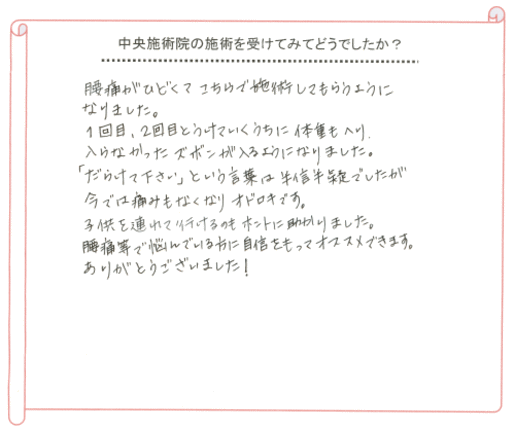 中央施術院の施術を受けてみてどうでしたか？
腰痛がひどくて こちらで施術してもらうように
なりました。
1回目、2回目とうけていくうちに 体重もへり、
入らなかった ズボンが入るようになりました。
「だらけて下さい」という言葉は 半信半疑でしたが
今では痛みもなくなり オドロキです。
子供を連れて行けるのも ホントに助かりました。
腰痛等で悩んでいる方に自信をもってオススメできます。
ありがとうございました！